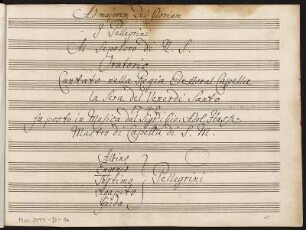 Ad majorem Dei Gloriam
I Pellegrini
Al Sepolcro di N. S.
Oratorio
Cantato nella Regia Elettoral Cappella
la Sera del Venerdi Santo
posto in Musica dal Sigr. Gio. Adol. Hasse
Maestro di Cappella di S. M.
Albino
Eugenio
Teotimo
Agapito
Guida
Pellegrini
Mus. 2477-D-